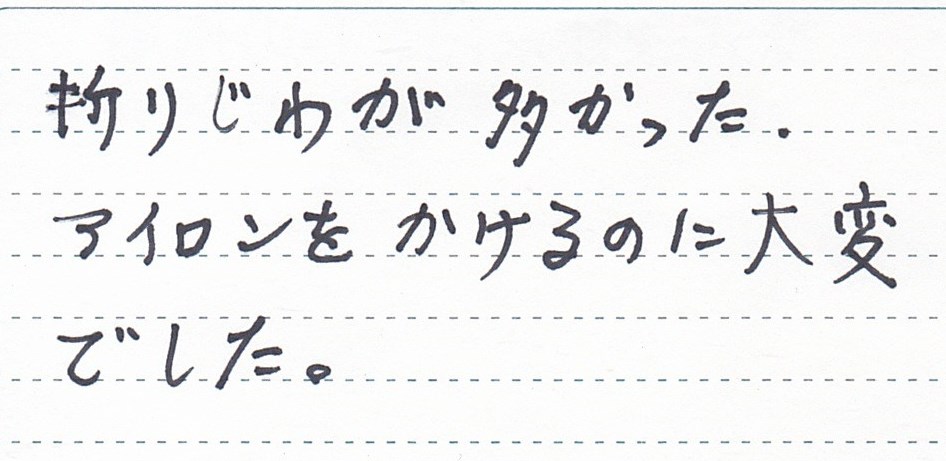 折りじわが多かった.
アイロンをかけるのに大変
でした。